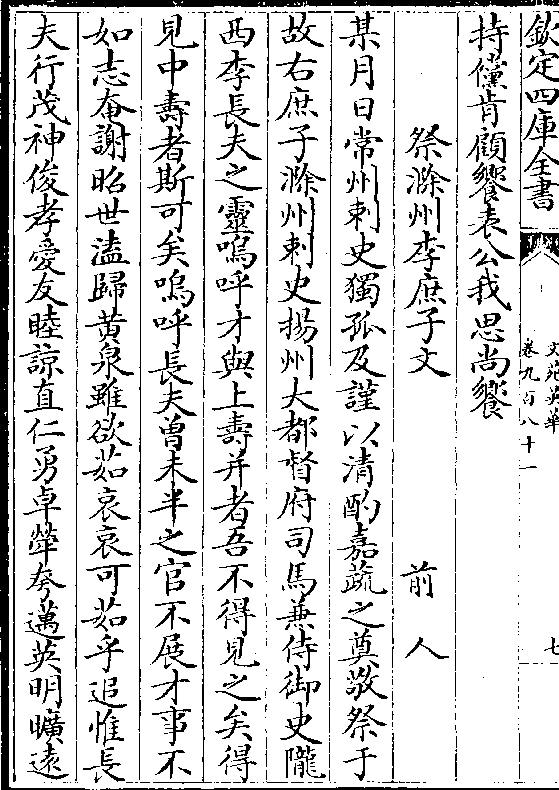 欽定四庫全書
文苑英華
卷九百八十一
七
持儻肯顧饗表公我思尚饗
祭滁州李庶子文　前人
某月日常州刺史獨孤及謹以清酌嘉蔬之奠敬祭于
故右庶子滁州刺史揚州大都督府司馬兼侍御史隴
西李長夫之靈嗚呼才與上壽并者吾不得見之矣得
見中壽者斯可矣嗚呼長夫曽未半之官不展才事不
如志奄謝昭世溘歸黄泉雖欲茹哀哀可茹乎追惟長
夫行茂神俊孝愛友睦諒直仁勇卓犖夸邁英明曠遠